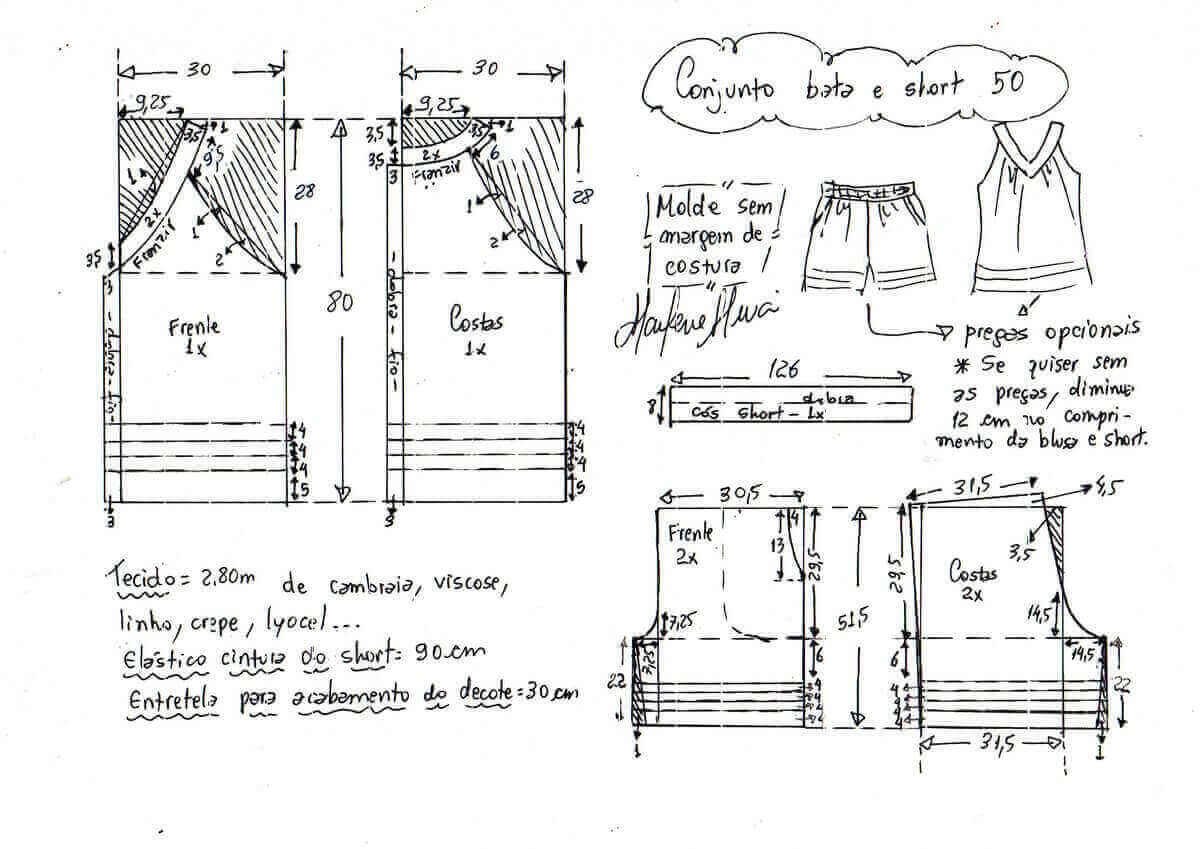 Conjunto bata e short 50
30
9,25
3,5
1
9,5
1
2x
Franzir
1
2
28
3,5
3
Frente
1x
4
4
4
5
3
80
30
9,25
3,5
3,5
3,5
1
6
2x
Franzir
3
1
2
28
dobra - fio
Costas
1x
4
4
4
5
3
Molde sem
margem de
costura
pregas opcionais
* Se quiser sem
as pregas, diminue
12 cm no compri-
mento da blusa e short.
126
8
dobra
cós short - 1x
30,5
Frente
2x
4
13
29,5
7,25
7,25
6
22
4
4
4
4
1
51,5
31,5
4,5
3,5
29,5
Costas
2x
14,5
14,5
6
4
4
4
4
22
31,5
1
Tecido = 2.80m de cambraia, viscose,
linho, crepe, lyocel...
Elástico cintura do short = 90 cm
Entretela para acabamento do decote = 30 cm